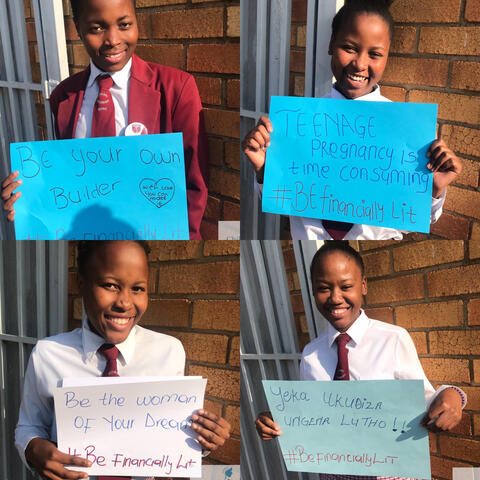 BE YOUR OWN
Builder
With LOVE
YOU CAN
Be Financially Lit
TEENAGE
Pregnancy is
time consuming
#BE financially Lit
Be the woman
OF Your Dream
#Be Financially Lit
Yeka UKUBIZA
UNGENA LUTHO !!
#Be Financially Lit